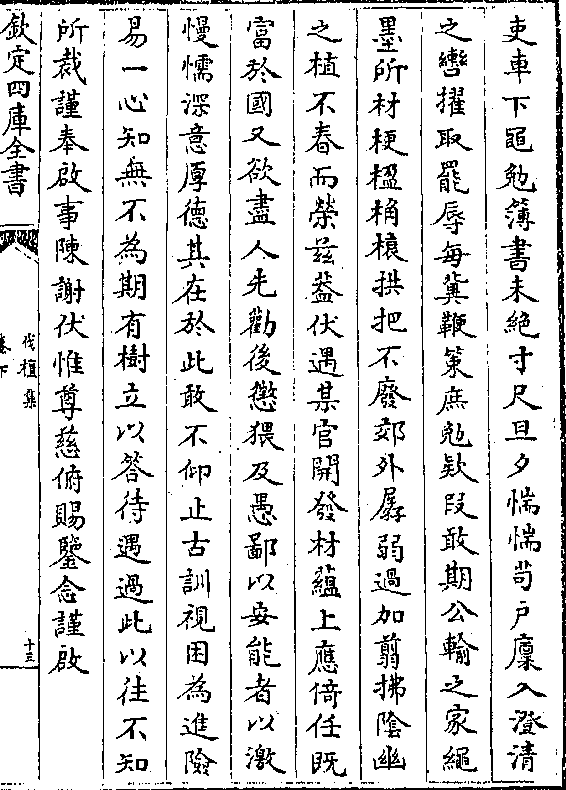 吏車下黽勉簿書未絶寸尺旦夕惴惴苟戸廪入澄清
之轡擢取罷辱每糞鞭策庶勉欵段敢期公輸之家繩
墨所材梗楹桷榱拱把不廢郊外孱弱過加翦拂陰幽
之植不春而榮兹葢伏遇某官開發材蘊上應倚任既
富於國又欲盡人先勸後懲猥及愚鄙以安能者以激
慢懦深意厚德其在於此敢不仰止古訓視困為進險
易一心知無不為期有樹立以答待遇過此以往不知
所裁謹奉啟事陳謝伏惟尊慈俯賜鑒念謹啟
欽定四庫全書
伐檀集
卷下
十三